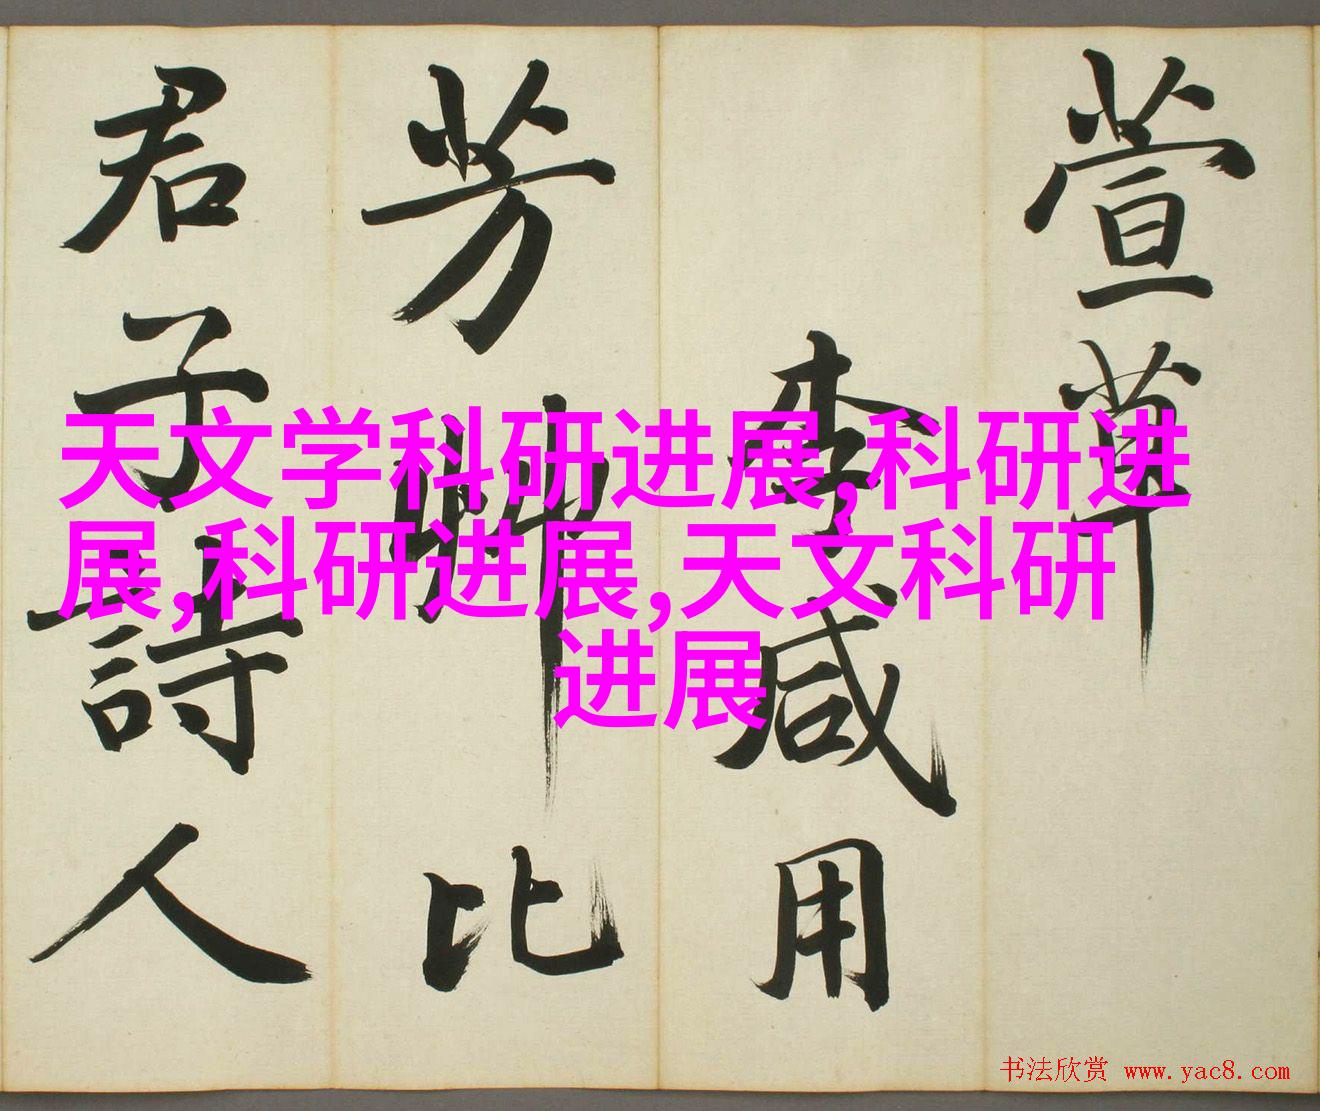 萱草
李咸用
芳艸比
君子詩人
天文学科研进展,科研进
展,科研进展,天文科研
进展
书法欣赏 www.yac8.com